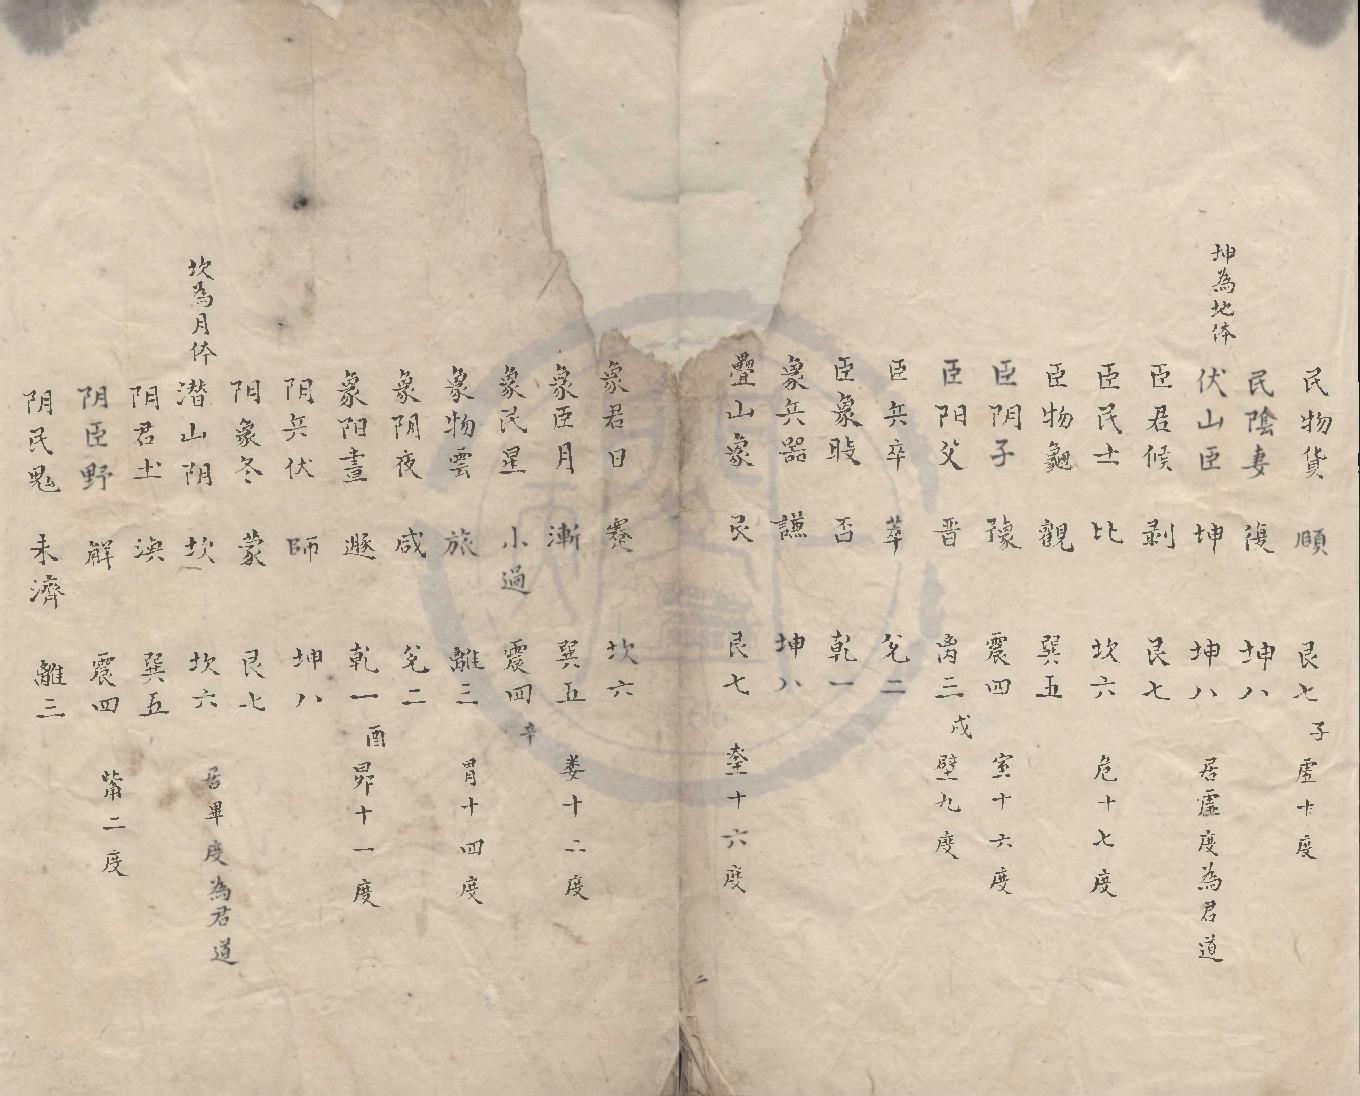 民物貨 頤 艮七 子 虛十度
民陰妻 復 坤八
坤為地体 伏山臣 坤 坤八 居虛度為君道
臣君候 剥 艮七
臣民士 比 坎六 危十七度
臣物龜 觀 巽五
臣阴子 豫 震四 室十六度
臣阳父 晋 离三 戌 壁九度
臣兵卒 萃 兊二
臣象 否 乾一
象兵器 謙 坤八
疊山象 艮 艮七 奎十六度
象君日 蹇 坎六
象臣月 漸 巽五 娄十二度
象民星 小過 震四 辛
象物雲 旅 離三 胃十四度
象阴夜 咸 兊二
象阳晝 遯 乾一 酉 昴十一度
阴兵伏 師 坤八
阴象冬 蒙 艮七
坎為月体 潜山阴 坎 坎六 居畢度為君道
阴君土 渙 巽五
阴臣野 解 震四 觜二度
阴民鬼 未濟 離三
二